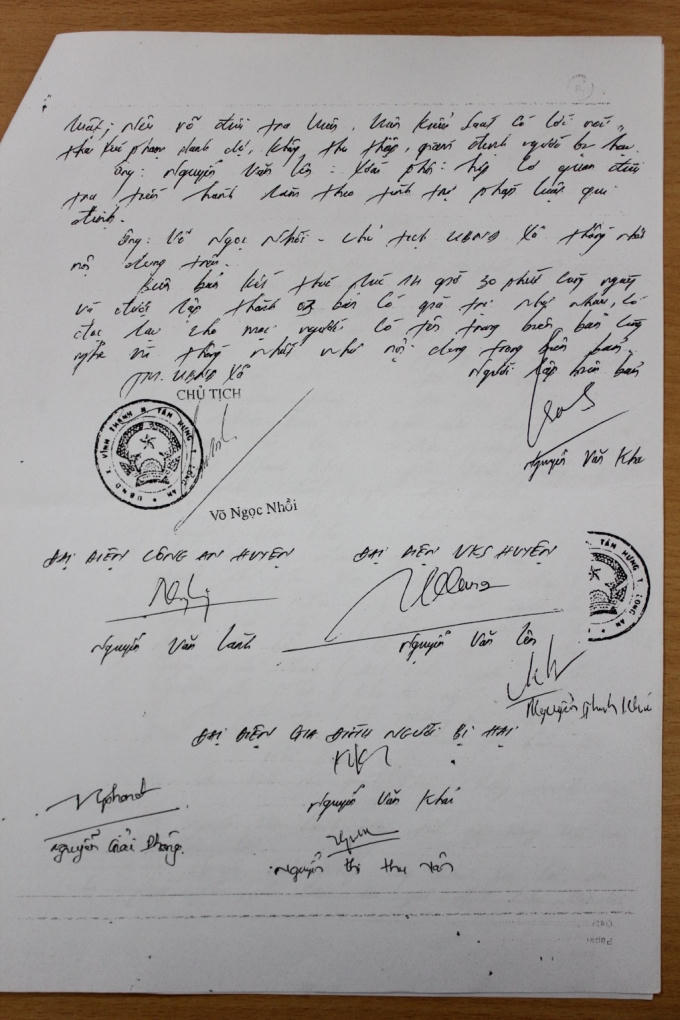 luật; nếu vẫn điều tra viên, viên kiểm sát có lời nói
thứ xúc phạm danh dự, không thu thập, giám định người bị hại.
Ông: Nguyễn Văn Lên: phối hợp cơ quan điều
tra tiến hành làm theo trình tự pháp luật qui
định.
Ông: Võ Ngọc Nhồi - chủ tịch UBND Xã thống nhất
nội dung trên.
Biên bản kết thúc lúc 14 giờ 30 phút cùng ngày
và được lập thành 03 bản có giá trị như nhau, có
đọc lại cho mọi người có tên trong biên bản cùng
nghe và thống nhất như nội dung trong biên bản.
TM. UBND Xã
Người lập biên bản
CHỦ TỊCH
UBND X. VĨNH THẠNH H. TÂN HƯNG T. LONG AN
Nguyễn Văn Kha
Võ Ngọc Nhồi
ĐẠI DIỆN CÔNG AN HUYỆN
ĐẠI DIỆN VKS HUYỆN
TÂN HƯNG T. LONG AN
Nguyễn Văn Lành
Nguyễn Văn Lên
Nguyễn
ĐẠI DIỆN GIA ĐÌNH NGƯỜI BỊ HẠI
Nguyễn Văn Khải
Nguyễn Giải Phóng
Nguyễn Thị Thu Vân